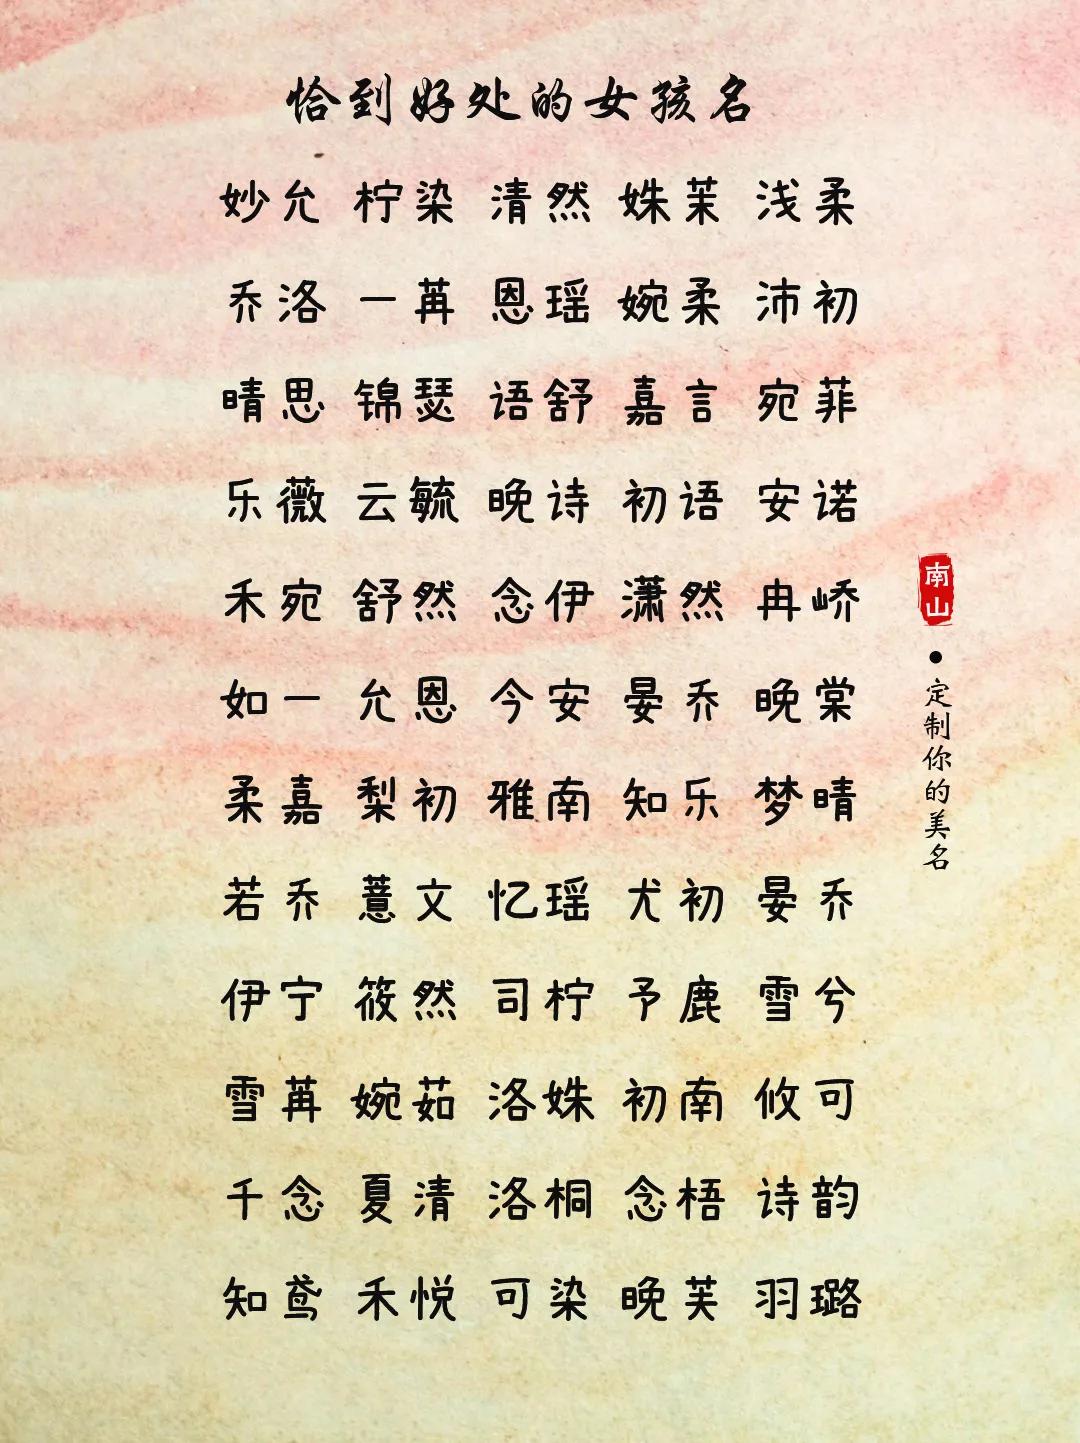 恰到好处的女孩名
妙允 柠染 清然 姝茉 浅柔
乔洛 一苒 恩瑶 婉柔 沛初
晴思 锦瑟 语舒 嘉言 宛菲
乐薇 云毓 晚诗 初语 安诺
禾宛 舒然 念伊 潇然 冉峤
如一 允恩 今安 晏乔 晚棠
柔嘉 梨初 雅南 知乐 梦晴
若乔 薏文 忆瑶 尤初 晏乔
伊宁 筱然 司柠 予鹿 雪兮
雪苒 婉茹 洛姝 初南 攸可
千念 夏清 洛桐 念梧 诗韵
知鸢 禾悦 可染 晚芙 羽璐
南山
•定制你的美名